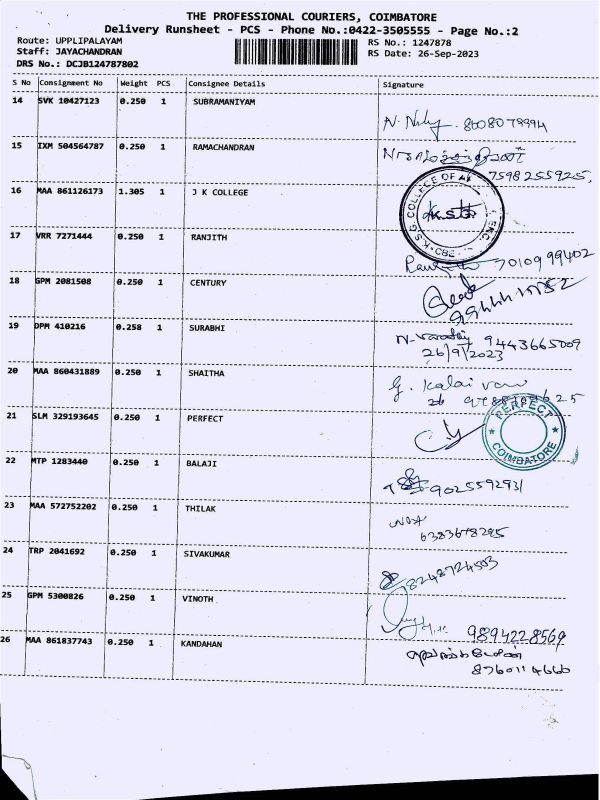 THE PROFESSIONAL COURIERS, COIMBATORE
Delivery Runsheet - PCS - Phone No.:0422-3505555 - Page No.:2
Route: UPPLIPALAYAM RS No.: 1247878
Staff: JAYACHANDRAN RS Date: 26-Sep-2023
DRS No.: DCJB124787802
S No Consignment No Weight PCS Consignee Details Signature
14 SVK 10427123 0.250 1 SUBRAMANIYAM
15 IXM 504564787 0.250 1 RAMACHANDRAN
7598255925
16 MAA 861126173 1.305 1 J K COLLEGE
COLLEGE OF
K.S.G
17 VRR 7271444 0.250 1 RANJITH
7010999402
18 GPM 2081508 0.250 1 CENTURY
19 DPM 410216 0.258 1 SURABHI
9443665009
26/9/2023
20 MAA 860431889 0.250 1 SHAITHA
21 SLM 329193645 0.250 1 PERFECT
PERFECT
COIMBATORE
22 MTP 1283440 0.250 1 BALAJI
9025592931
23 MAA 572752202 0.250 1 THILAK
6383678295
24 TRP 2041692 0.250 1 SIVAKUMAR
8248724503
25 GPM 5300826 0.250 1 VINOTH
9894228569
26 MAA 861837743 0.250 1 KANDAHAN
8760114666